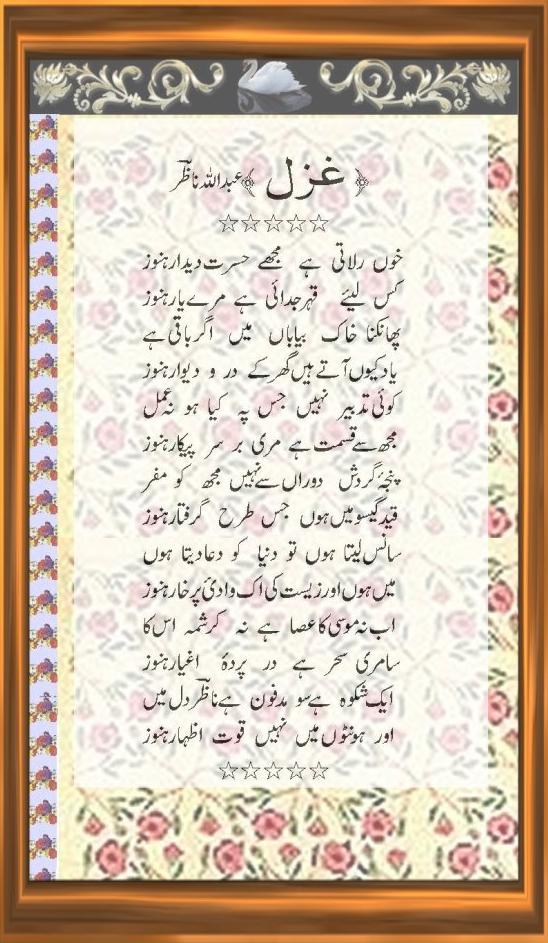 ﴿ غزل ﴾ عبداللہ ناظرؔ
☆☆☆☆☆
خوں رلاتی ہے مجھے حسرت دیدار ہنوز
کس لیئے قہر جدائی ہے مرے یار ہنوز
پھانکنا خاک بیاباں میں اگر باقی ہے
یاد کیوں آتے ہیں گھر کے در و دیوار ہنوز
کوئی تدبیر نہیں جس پہ کیا ہو نہ عمل
مجھ سے قسمت ہے مری بر سر پیکار ہنوز
پنجۂ گردش دوراں سے نہیں مجھ کو مفر
قید گیسو میں ہوں جس طرح گرفتار ہنوز
سانس لیتا ہوں تو دنیا کو دعا دیتا ہوں
میں ہوں اور زیست کی اک وادیٔ پرخار ہنوز
اب نہ موسی کا عصا ہے نہ کرشمہ اس کا
سامری سحر ہے در پردۂ اغیار ہنوز
ایک شکوہ ہے سو مدفون ہے ناظرؔ دل میں
اور ہونٹوں میں نہیں قوت اظہار ہنوز
☆☆☆☆☆